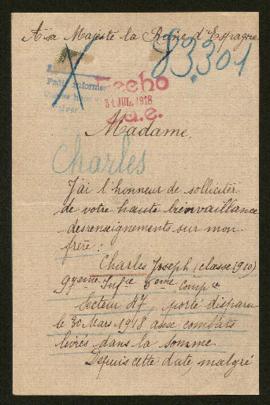 A sa Majesté la Reine d'Espagne
83.301
Fecho
31 JUL. 1918
Madame,
Charles
J'ai l'honneur de solliciter
de votre haute bienvaillance
des renseignements sur mon
frère :
Charles Joseph (classe 1910)
97eme Inf.ie 5eme Comp.ie
secteur 87 porté disparu
le 30 Mars 1918 aux combats
livrés dans la somme
Depuis cette date, malgré